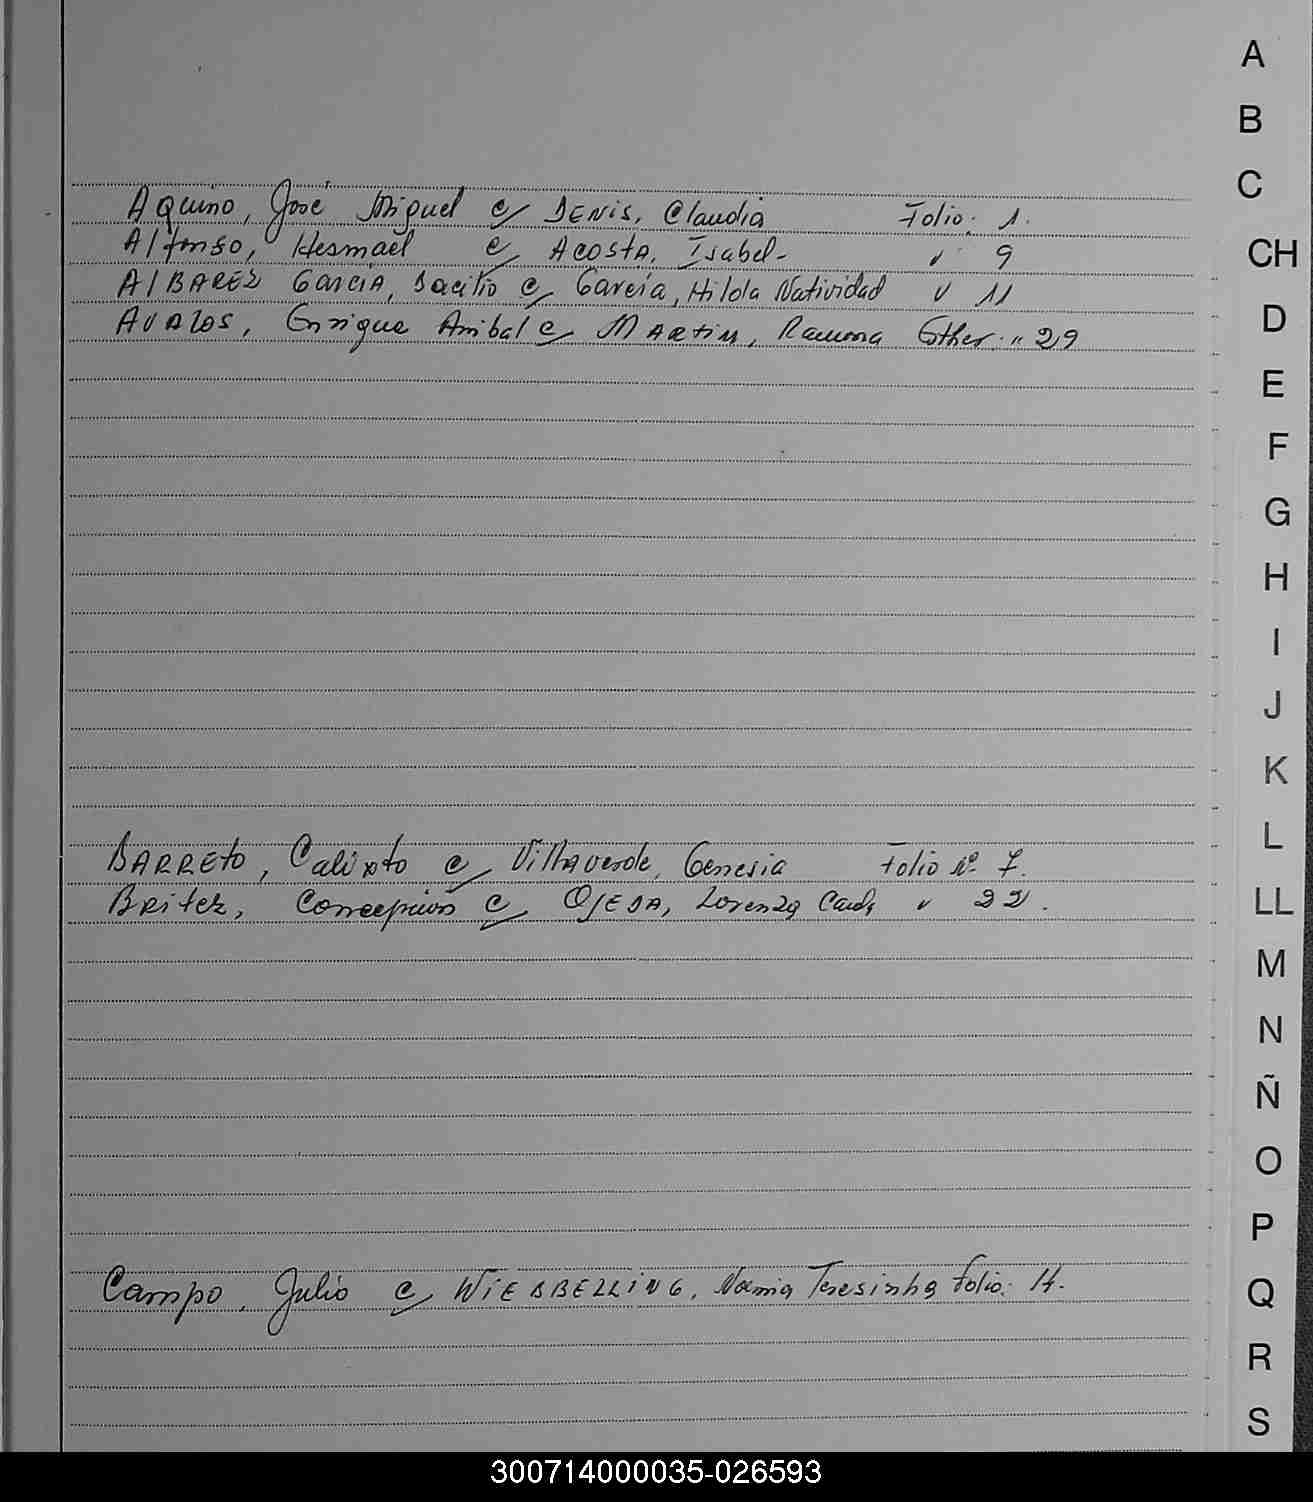 Aquino, José Miguel c/ DENIS, Claudia Folio: 1.
Alfonso, Hesmael c/ ACOSTA, Isabel- " 9
AlBAREZ GARCIA, Bacilio c/ Garcia, Hilda Natividad " 11
AVALOS, Enrique Anibal c/ MARTIN, Ramona Esther. " 29
BARRETO, Calixto c/ Villaverde, Genesia Folio Nº 7.
Britez, Concepción c/ OJEDA, Lorenza " 22.
Campo, Julio c/ Noemia Teresinha folio: 14.
A
B
C
CH
D
E
F
G
H
I
J
K
L
LL
M
N
Ñ
O
P
Q
R
S
300714000035-026593